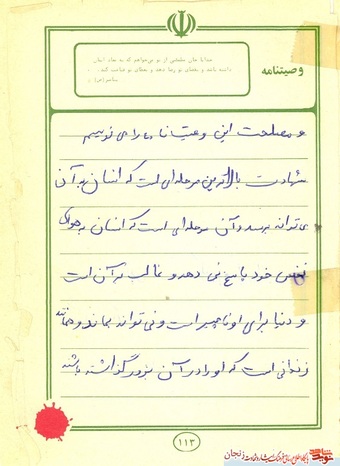 وصیتنامه
خدایا من
و مصلحت این وصیت نامه را می نویسم
شهادت بالاترین مرحله‌ای است که انسان به آن
می تواند برسد و آن مرحله‌ای است که انسان به هوای
نفس خود پاسخ نمی دهد و غالب به آن است
و دنیا برای او ناچیز است و نمی تواند بماند و همانند
زندانی است که او را در آن بزور گذاشته باشند
۱۱۳
زنجان